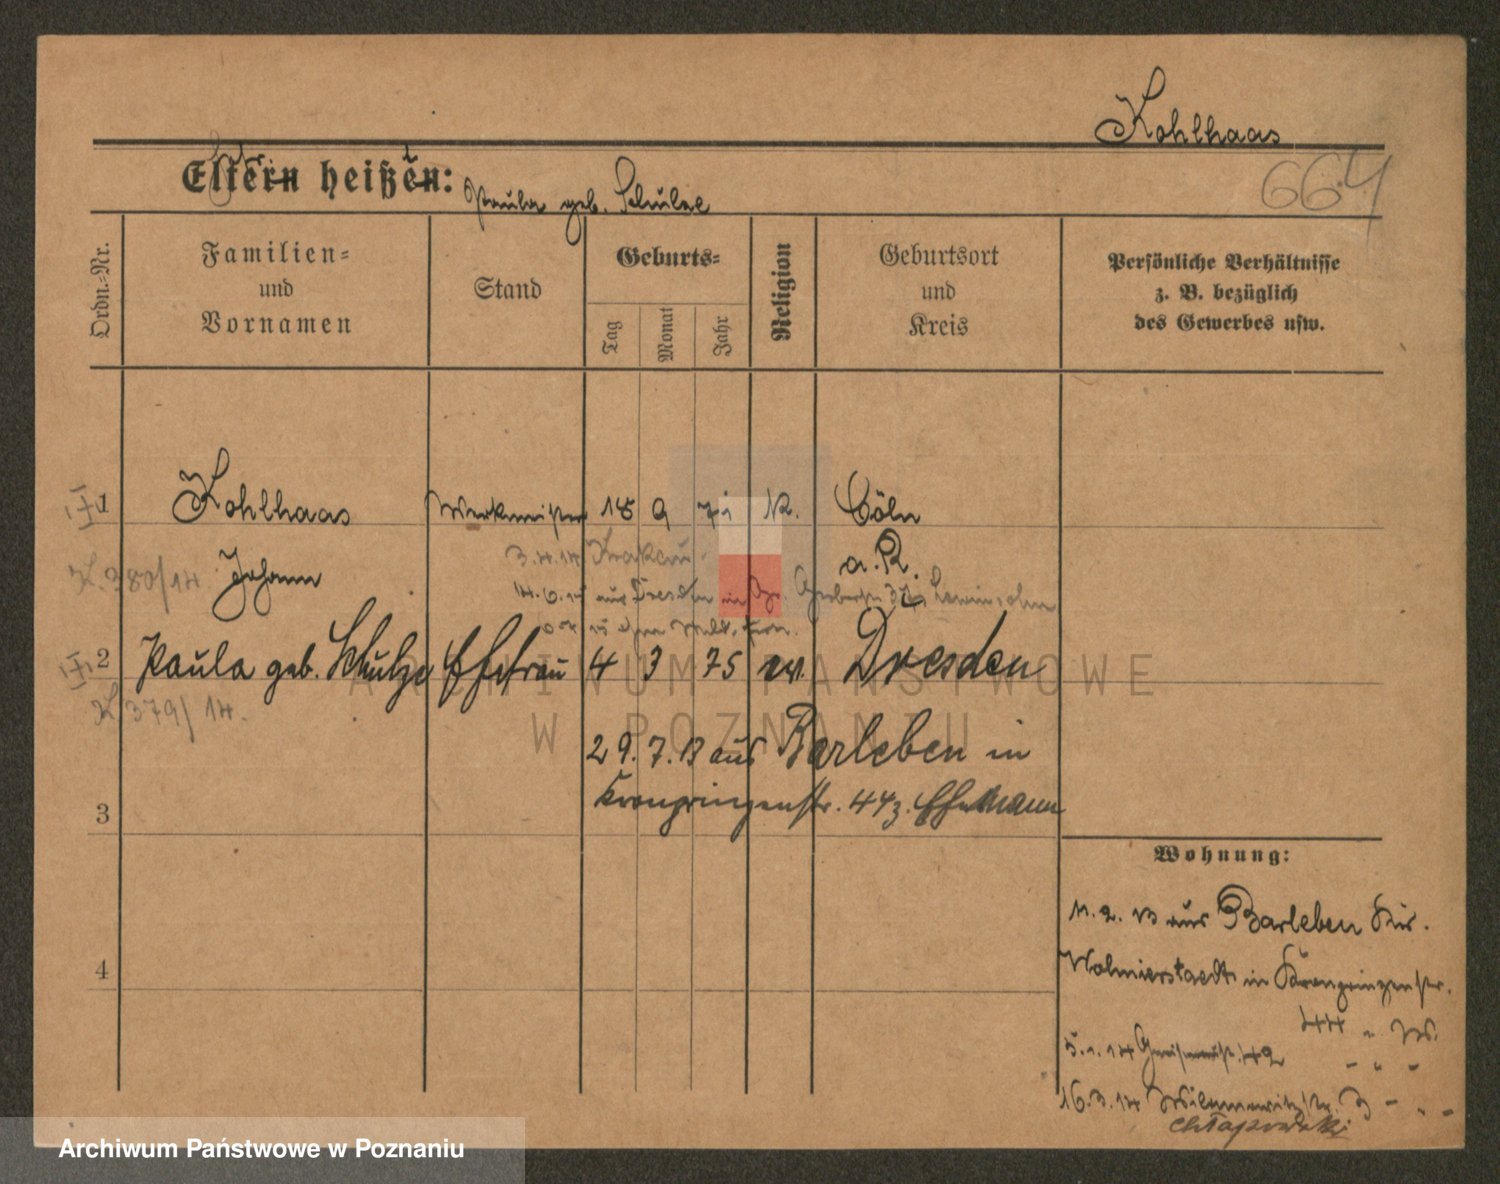 Kohlhaas
664
Eltern heißen:
Paula geb. Schulze
Ordn.-Nr.
Familien-
und
Vornamen
Stand
Geburts-
Tag
Monat
Jahr
Religion
Geburtsort
und
Kreis
Persönliche Verhältnisse
z. B. bezüglich
des Gewerbes usw.
1 Kohlhaas Werkmeister 18 9 71 K. Cöln
3.4.14 Krakau
K. 380/14 Johann a. R.
aus Dresden in
2 Paula geb. Schulze Ehefrau 4 3 75 ev. Dresden
K 379/14.
29. 7. 13 aus Barleben in
3 Kronprinzenstr. 44 z. Ehemann
4
Wohnung:
11. 2. 13 aus Barleben Kr.
Wolmierstaedt in Kronprinzenstr.
44 " W.
5.1.14 Gneisenaustr. 42 - " -
16.3.14 - " -
Chłapowski
ARCHIWUM PAŃSTWOWE
W POZNANIU
Archiwum Państwowe w Poznaniu